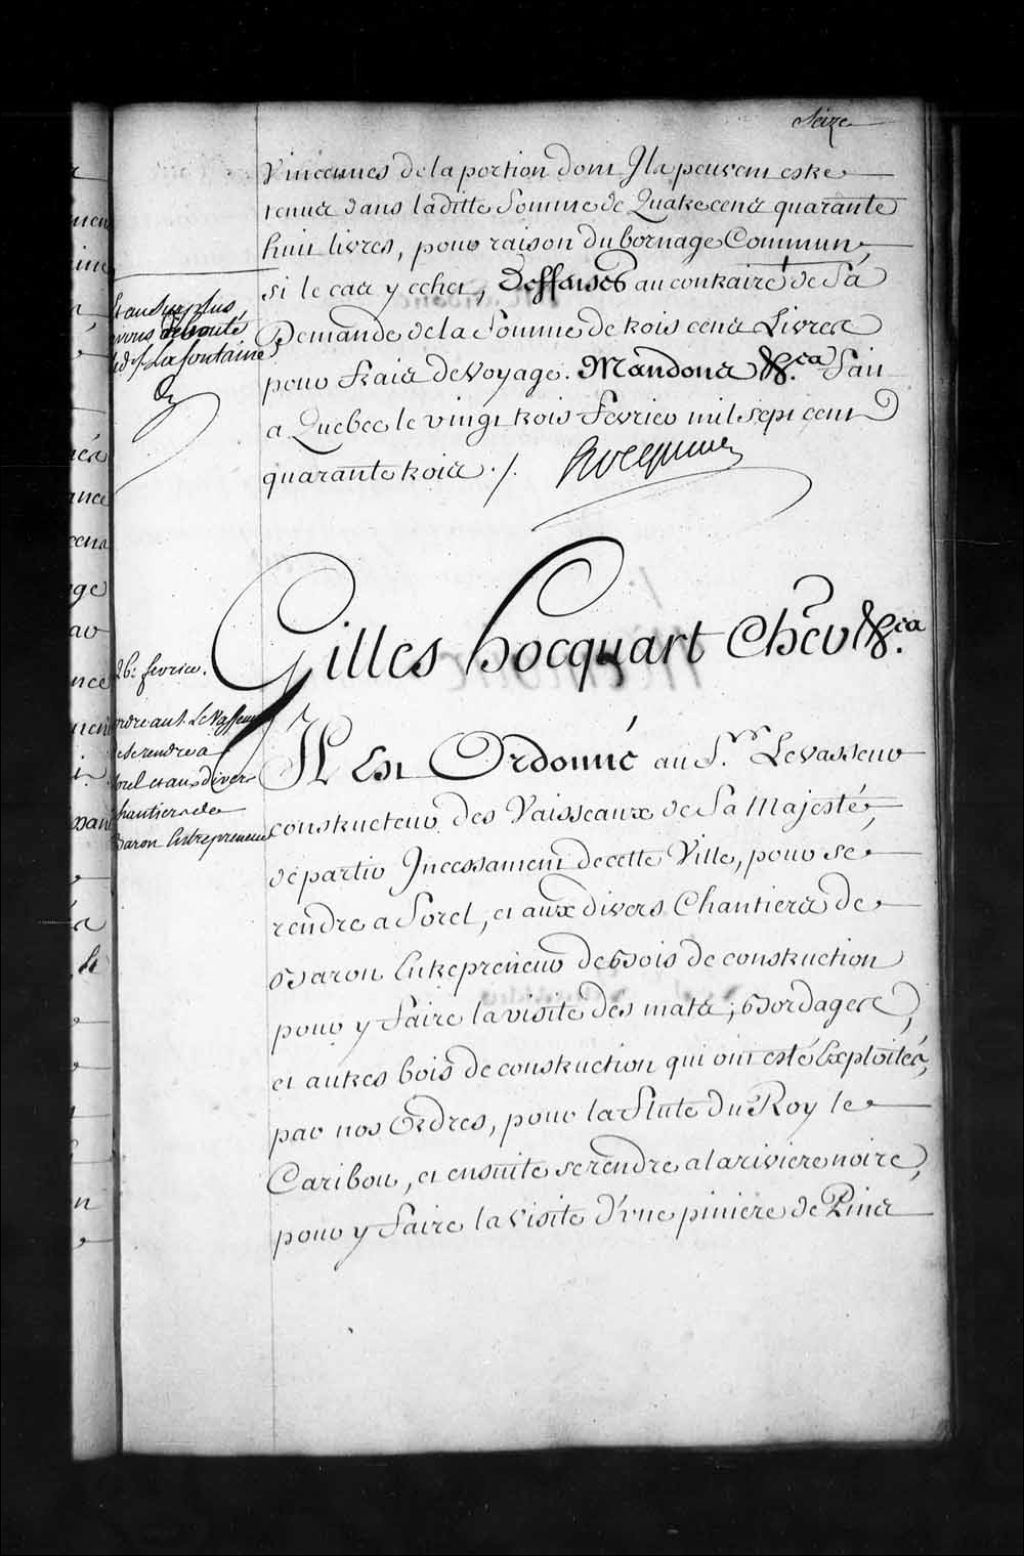 Seize
Vincennes de la portion dont Ils peuvent estre
tenus dans laditte Somme de Quatre cens quarante
huit livres, pour raison du bornage Commun,
si le cas y echet, Deffenses au contraire de Sa
Demande de la Somme de trois cens Livres
pour frais de Voyage. Mandons &.ca Fait
a Quebec le vingt trois Fevrier mil sept cent
quarante trois ./. Hocquart
Et au Surplus
avons debouté
led. s. La fontaine
Gilles hocquart Chev &.ca
26: fevrier.
ordre au S. Le Vasseur
de se rendre a
Sorel et aux divers
Chantiers de
Baron Entrepreneur
Il Est Ordonné au S.r Levasseur
constructeur des Vaisseaux de Sa Majesté,
de partir Incessament de cette Ville, pour se
rendre a Sorel, et aux divers Chantiers de
Baron Entrepreneur de Bois de construction
pour y faire la visite des mats, Bordages,
et autres bois de construction qui ont esté Exploités,
par nos Ordres, pour la Flute du Roy le
Caribou, et ensuite se rendre a la riviere noire,
pour y faire la visite d'une piniere de Pins